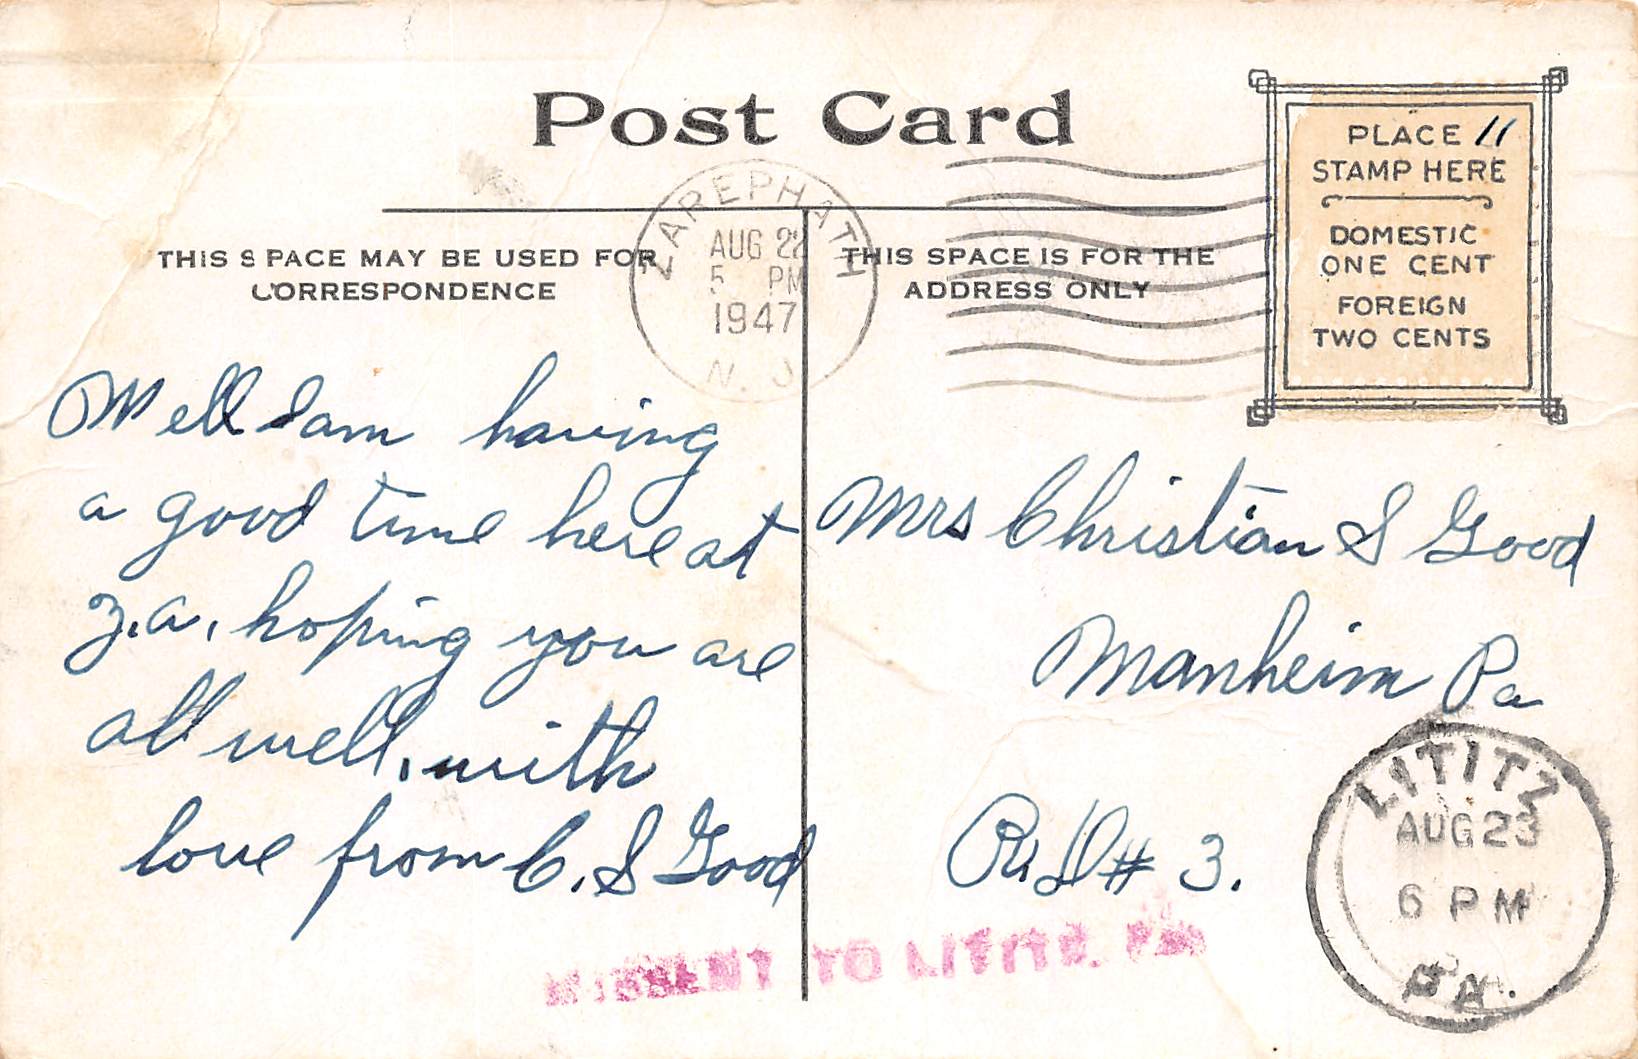 Post Card
PLACE 11
STAMP HERE
DOMESTIC
ONE CENT
FOREIGN
TWO CENTS
ZAREPHATH
AUG 22
5 PM
1947
N. J
THIS SPACE MAY BE USED FOR
CORRESPONDENCE
THIS SPACE IS FOR THE
ADDRESS ONLY
Well I am having
a good time here at
Z.a, hoping you are
all well, with
love from C. S Good
Mrs Christian S Good
Manheim Pa
R.D # 3.
LITITZ
AUG 23
6 PM
PA.
MISSENT TO LITITZ, PA